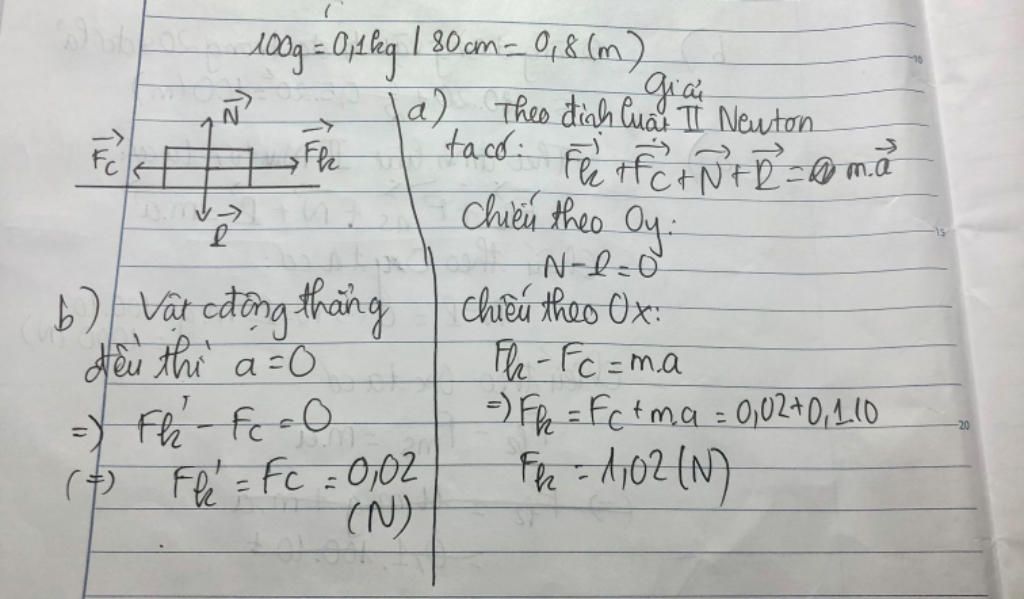 100g = 0,1kg | 80cm = 0,8(m)
Giải
N
Fc
Fk
P
a) Theo định luật II Newton
ta có: Fk + Fc + N + P = m.a
Chiếu theo Oy:
N - P = 0
Chiếu theo Ox:
Fk - Fc = m.a
=> Fk = Fc + m.a = 0,02 + 0,1.10
Fk = 1,02 (N)
b) Vật cđộng thẳng
đều thì a = 0
=> Fk' - Fc = 0
(=) Fk' = Fc = 0,02
(N)